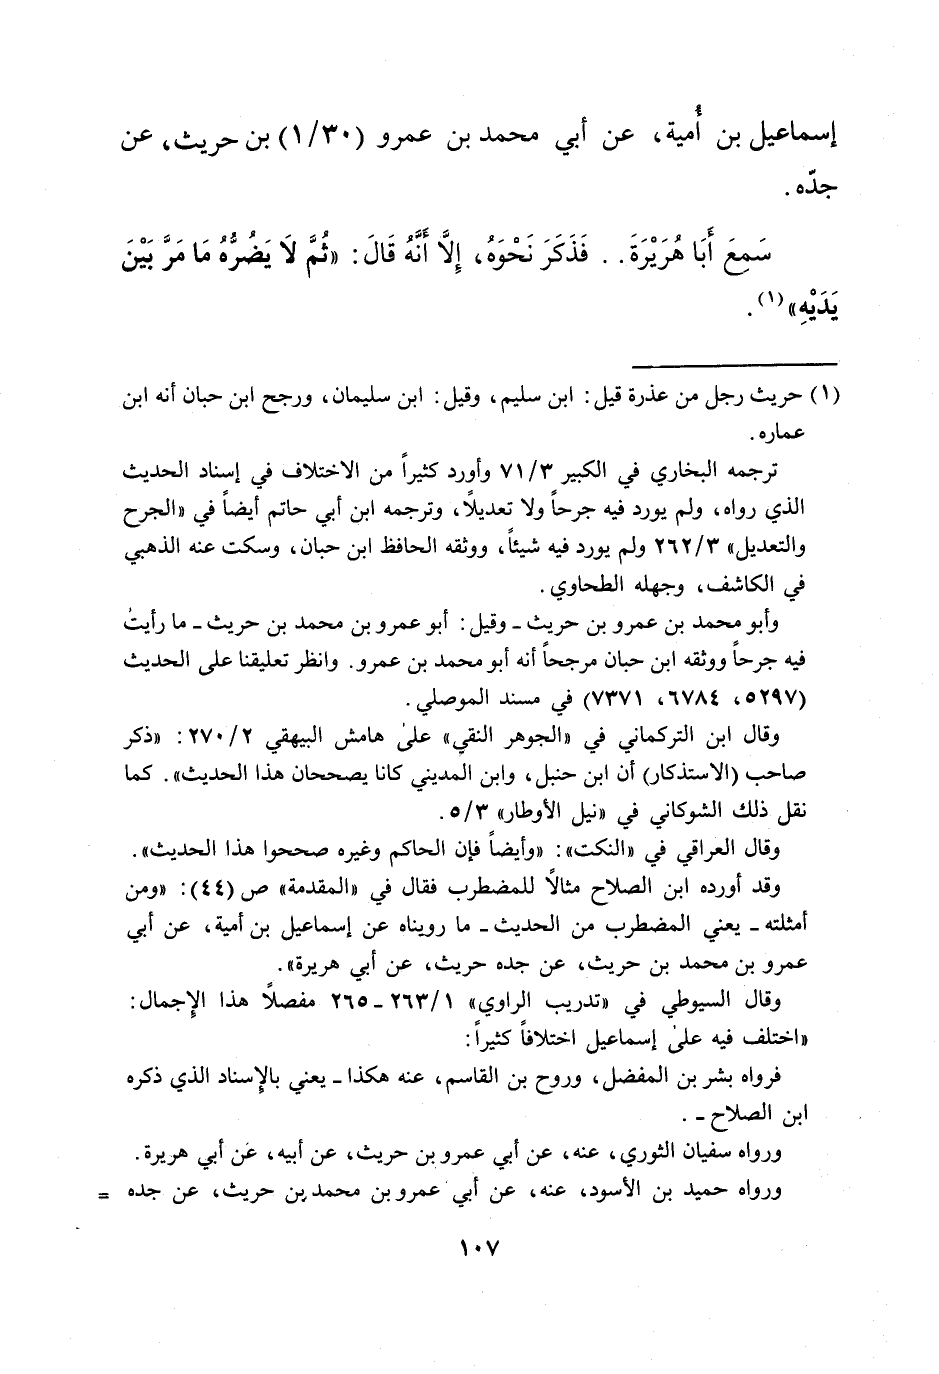 إسماعيل بن أُمية، عن أبي محمد بن عمرو (١/٣٠) بن حريث، عن
جدّه .
سَمِعَ أَبَا هُرَيْرَةَ . . فَذَكَرَ نَحْوَهُ، إِلَّا أَنَّهُ قَالَ: «ثُمَّ لَا يَضُرُّهُ مَا مَرَّ بَيْنَ
يَدَيْهِ»(١) .
(١) حريث رجل من عذرة قيل: ابن سليم، وقيل: ابن سليمان، ورجح ابن حبان أنه ابن
عماره .
ترجمه البخاري في الكبير ٧١/٣ وأورد كثيراً من الاختلاف في إسناد الحديث
الذي رواه، ولم يورد فيه جرحاً ولا تعديلًا، وترجمه ابن أبي حاتم أيضاً في «الجرح
والتعديل» ٢٦٢/٣ ولم يورد فيه شيئاً، ووثقه الحافظ ابن حبان، وسكت عنه الذهبي
في الكاشف، وجهله الطحاوي .
وأبو محمد بن عمرو بن حريث ـ وقيل: أبو عمرو بن محمد بن حريث ـ ما رأيت
فيه جرحاً ووثقه ابن حبان مرجحاً أنه أبو محمد بن عمرو. وانظر تعليقنا على الحديث
(٥٢٩٧، ٦٧٨٤، ٧٣٧١) في مسند الموصلي .
وقال ابن التركماني في «الجوهر النقي» علىٰ هامش البيهقي ٢٧٠/٢: «ذكر
صاحب (الاستذكار) أن ابن حنبل، وابن المديني كانا يصححان هذا الحديث». كما
نقل ذلك الشوكاني في «نيل الأوطار» ٥/٣ .
وقال العراقي في «النكت»: «وأيضاً فإن الحاكم وغيره صححوا هذا الحديث» .
وقد أورده ابن الصلاح مثالًا للمضطرب فقال في «المقدمة» ص (٤٤): «ومن
أمثلته ـ يعني المضطرب من الحديث ـ ما رويناه عن إسماعيل بن أمية، عن أبي
عمرو بن محمد بن حريث، عن جده حريث، عن أبي هريرة» .
وقال السيوطي في «تدريب الراوي» ٢٦٣/١ ـ ٢٦٥ مفصلًا هذا الإجمال:
«اختلف فيه علىٰ إسماعيل اختلافاً كثيراً:
فرواه بشر بن المفضل، وروح بن القاسم، عنه هكذا ـ يعني بالإسناد الذي ذكره
ابن الصلاح ـ .
ورواه سفيان الثوري، عنه، عن أبي عمرو بن حريث، عن أبيه، عن أبي هريرة .
ورواه حميد بن الأسود، عنه، عن أبي عمرو بن محمد بن حريث، عن جده =
١٠٧